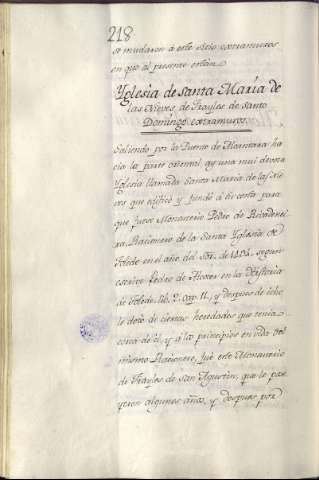 218
se mudaron á este sitio extramuros
en que al presente están.
Yglesia de santa María de
las Nieves, de Frayles de santo
Domingo, extramuros.
Saliendo por la Puente de Alcantara ha
cia la parte oriental ay una mui devota
Yglesia llamada Santa María de las Nie
ves que edificó y fundó á su costa para
que fuera Monasterio Pedro de Ribadenei
ra, Racionero de la Santa Yglesia de
Toledo en el año del Sor. de 1494. segun
escrive Pedro de Alcocer en la Historia
de Toledo, lib. 2. cap. 11., y despues de echo
le dotó de ciertas heredades que tenia
cerca de él, y á los principios en vida del
mismo Racionero, fué este Monasterio
de Frayles de san Agustin, que le po
seyeron algunos años, y despues por